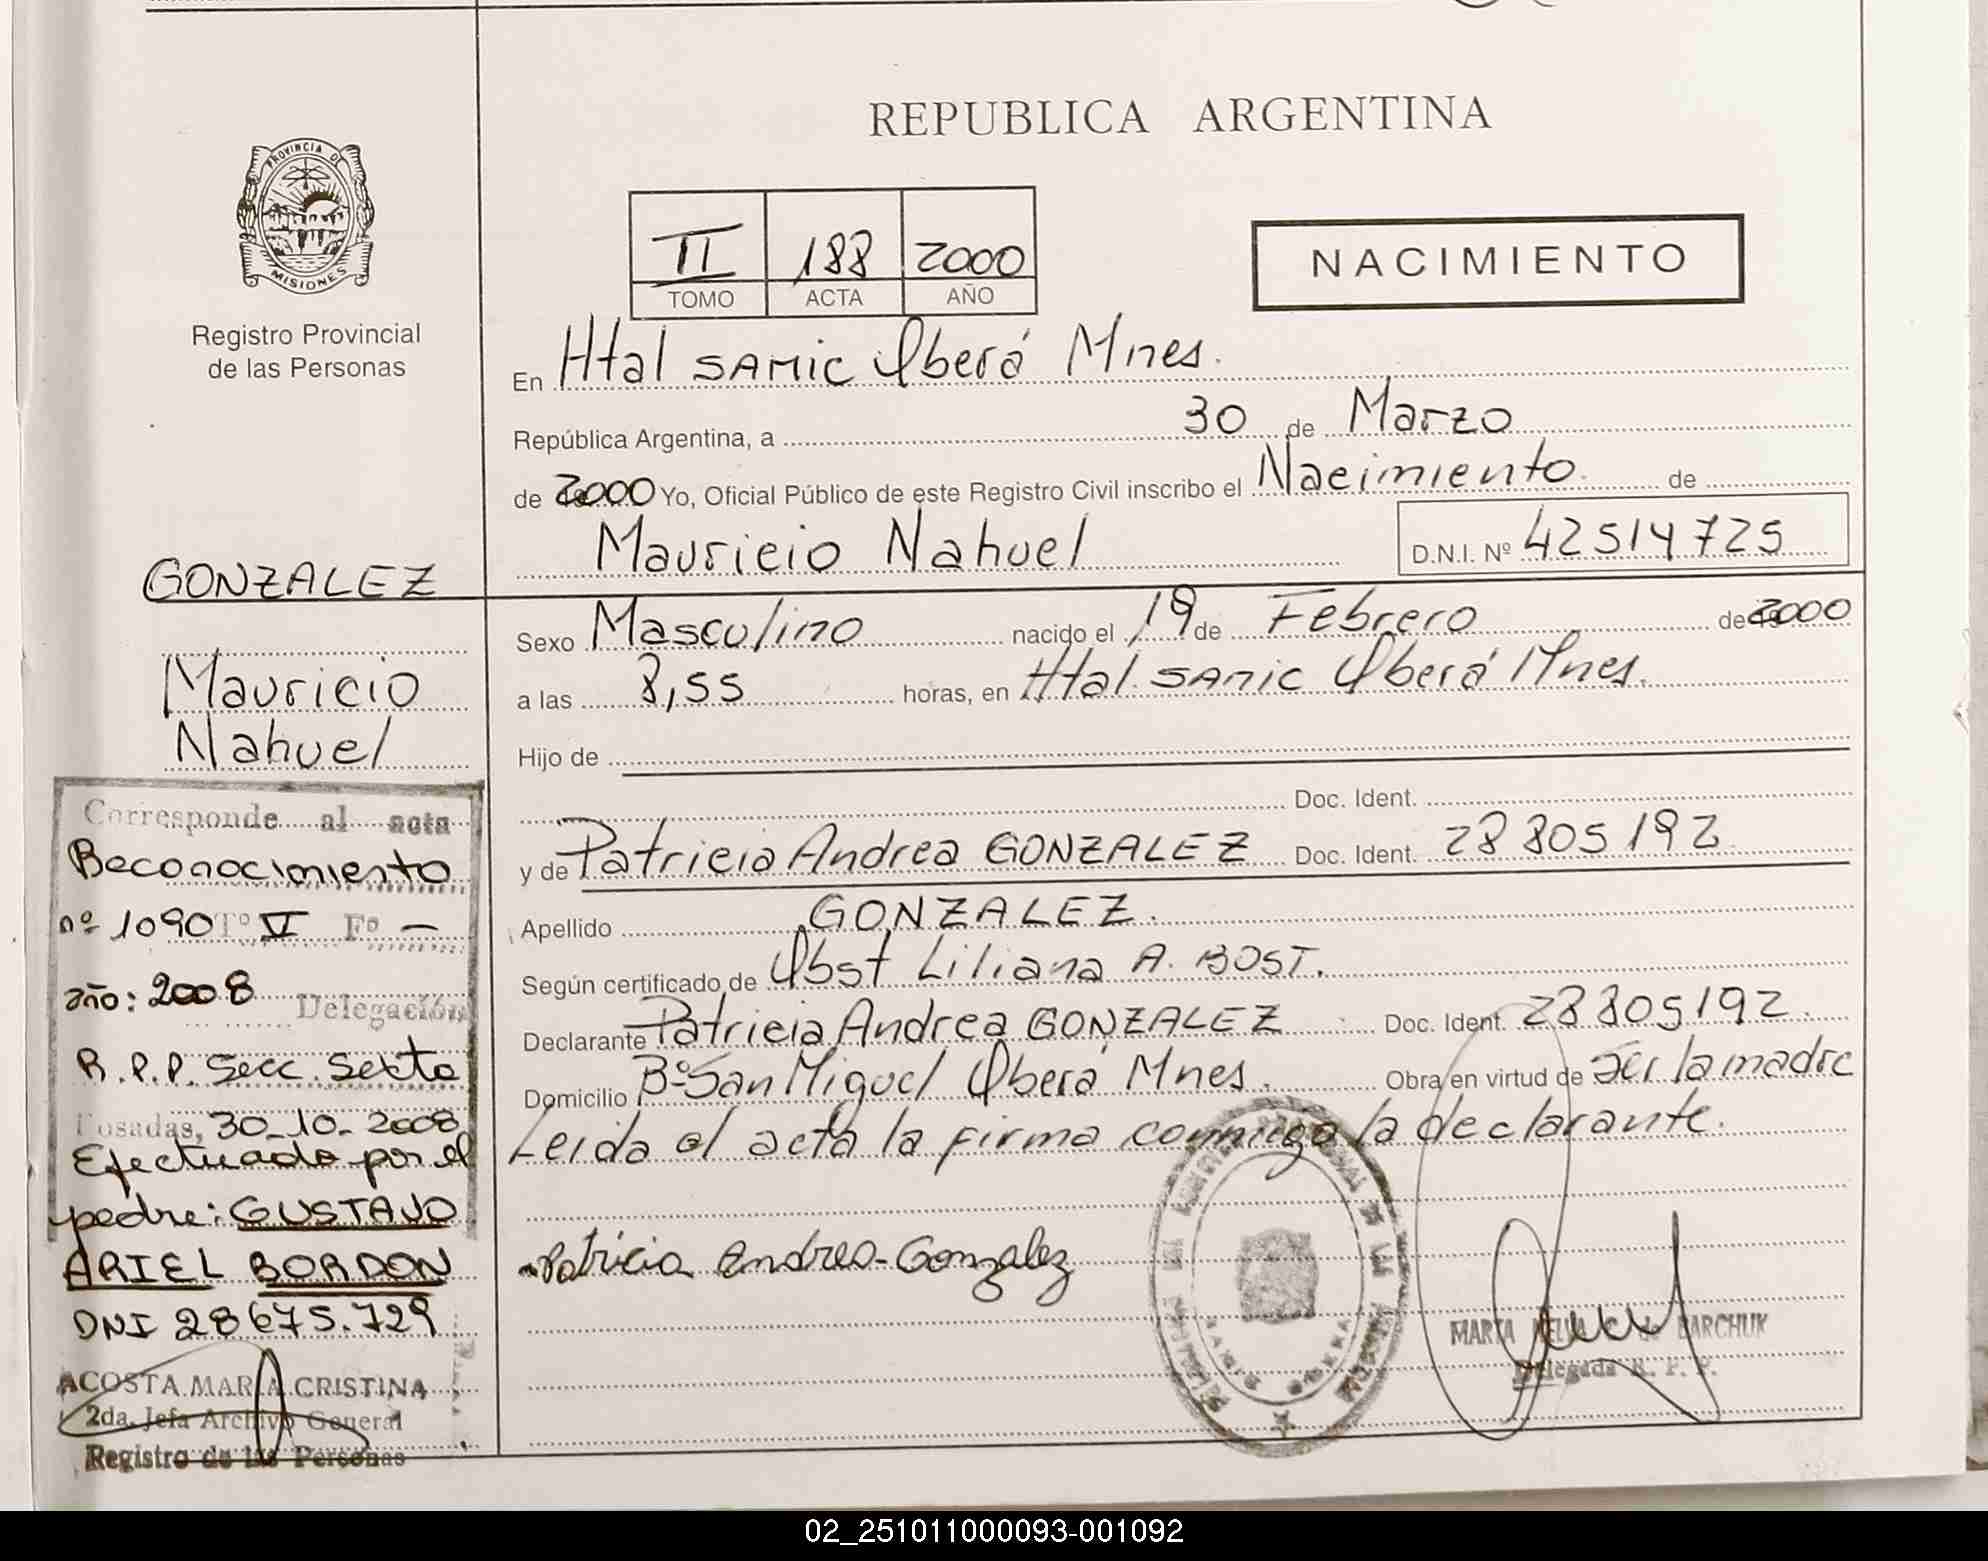 REPUBLICA ARGENTINA
PROVINCIA DE
MISIONES
Registro Provincial
de las Personas
II 188 2000
TOMO ACTA AÑO
NACIMIENTO
En Htal SAMIC Oberá Mnes.
República Argentina, a 30 de Marzo
de 2000 Yo, Oficial Público de este Registro Civil inscribo el Nacimiento. de
Mauricio Nahuel D.N.I. Nº 42514725
Sexo Masculino nacido el 19 de Febrero de 2000
a las 8,55 horas, en Htal. SAMIC Oberá Mnes.
Hijo de
Doc. Ident.
y de Patricia Andrea GONZALEZ Doc. Ident. 28805192
Apellido GONZALEZ.
Según certificado de Obst Liliana A. BOST.
Declarante Patricia Andrea GONZALEZ Doc. Ident. 28805192.
Domicilio Bº San Miguel Oberá Mnes. Obra en virtud de ser la madre
Leida el acta la firma conmigo la declarante.
Patricia Andrea Gonzalez
MARTA C. de BARCHUK
Delegada R. P. P.
GONZALEZ
Mauricio
Nahuel
Corresponde al acta
Reconocimiento
nº 1090 Tº V Fº —
año: 2008 Delegación
R.P.P. Secc. Sexta
Posadas, 30-10-2008
Efectuado por el
padre: GUSTAVO
ARIEL BORDON
DNI 28675.729
ACOSTA MARIA CRISTINA
2da. Jefa Archivo General
Registro de las Personas
02_251011000093-001092